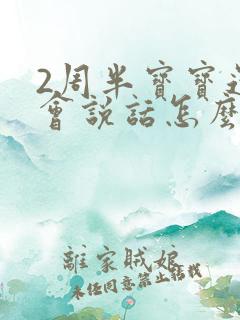 2周半寶寶
會說話怎麼
離家賊娘
未经同意禁止转载